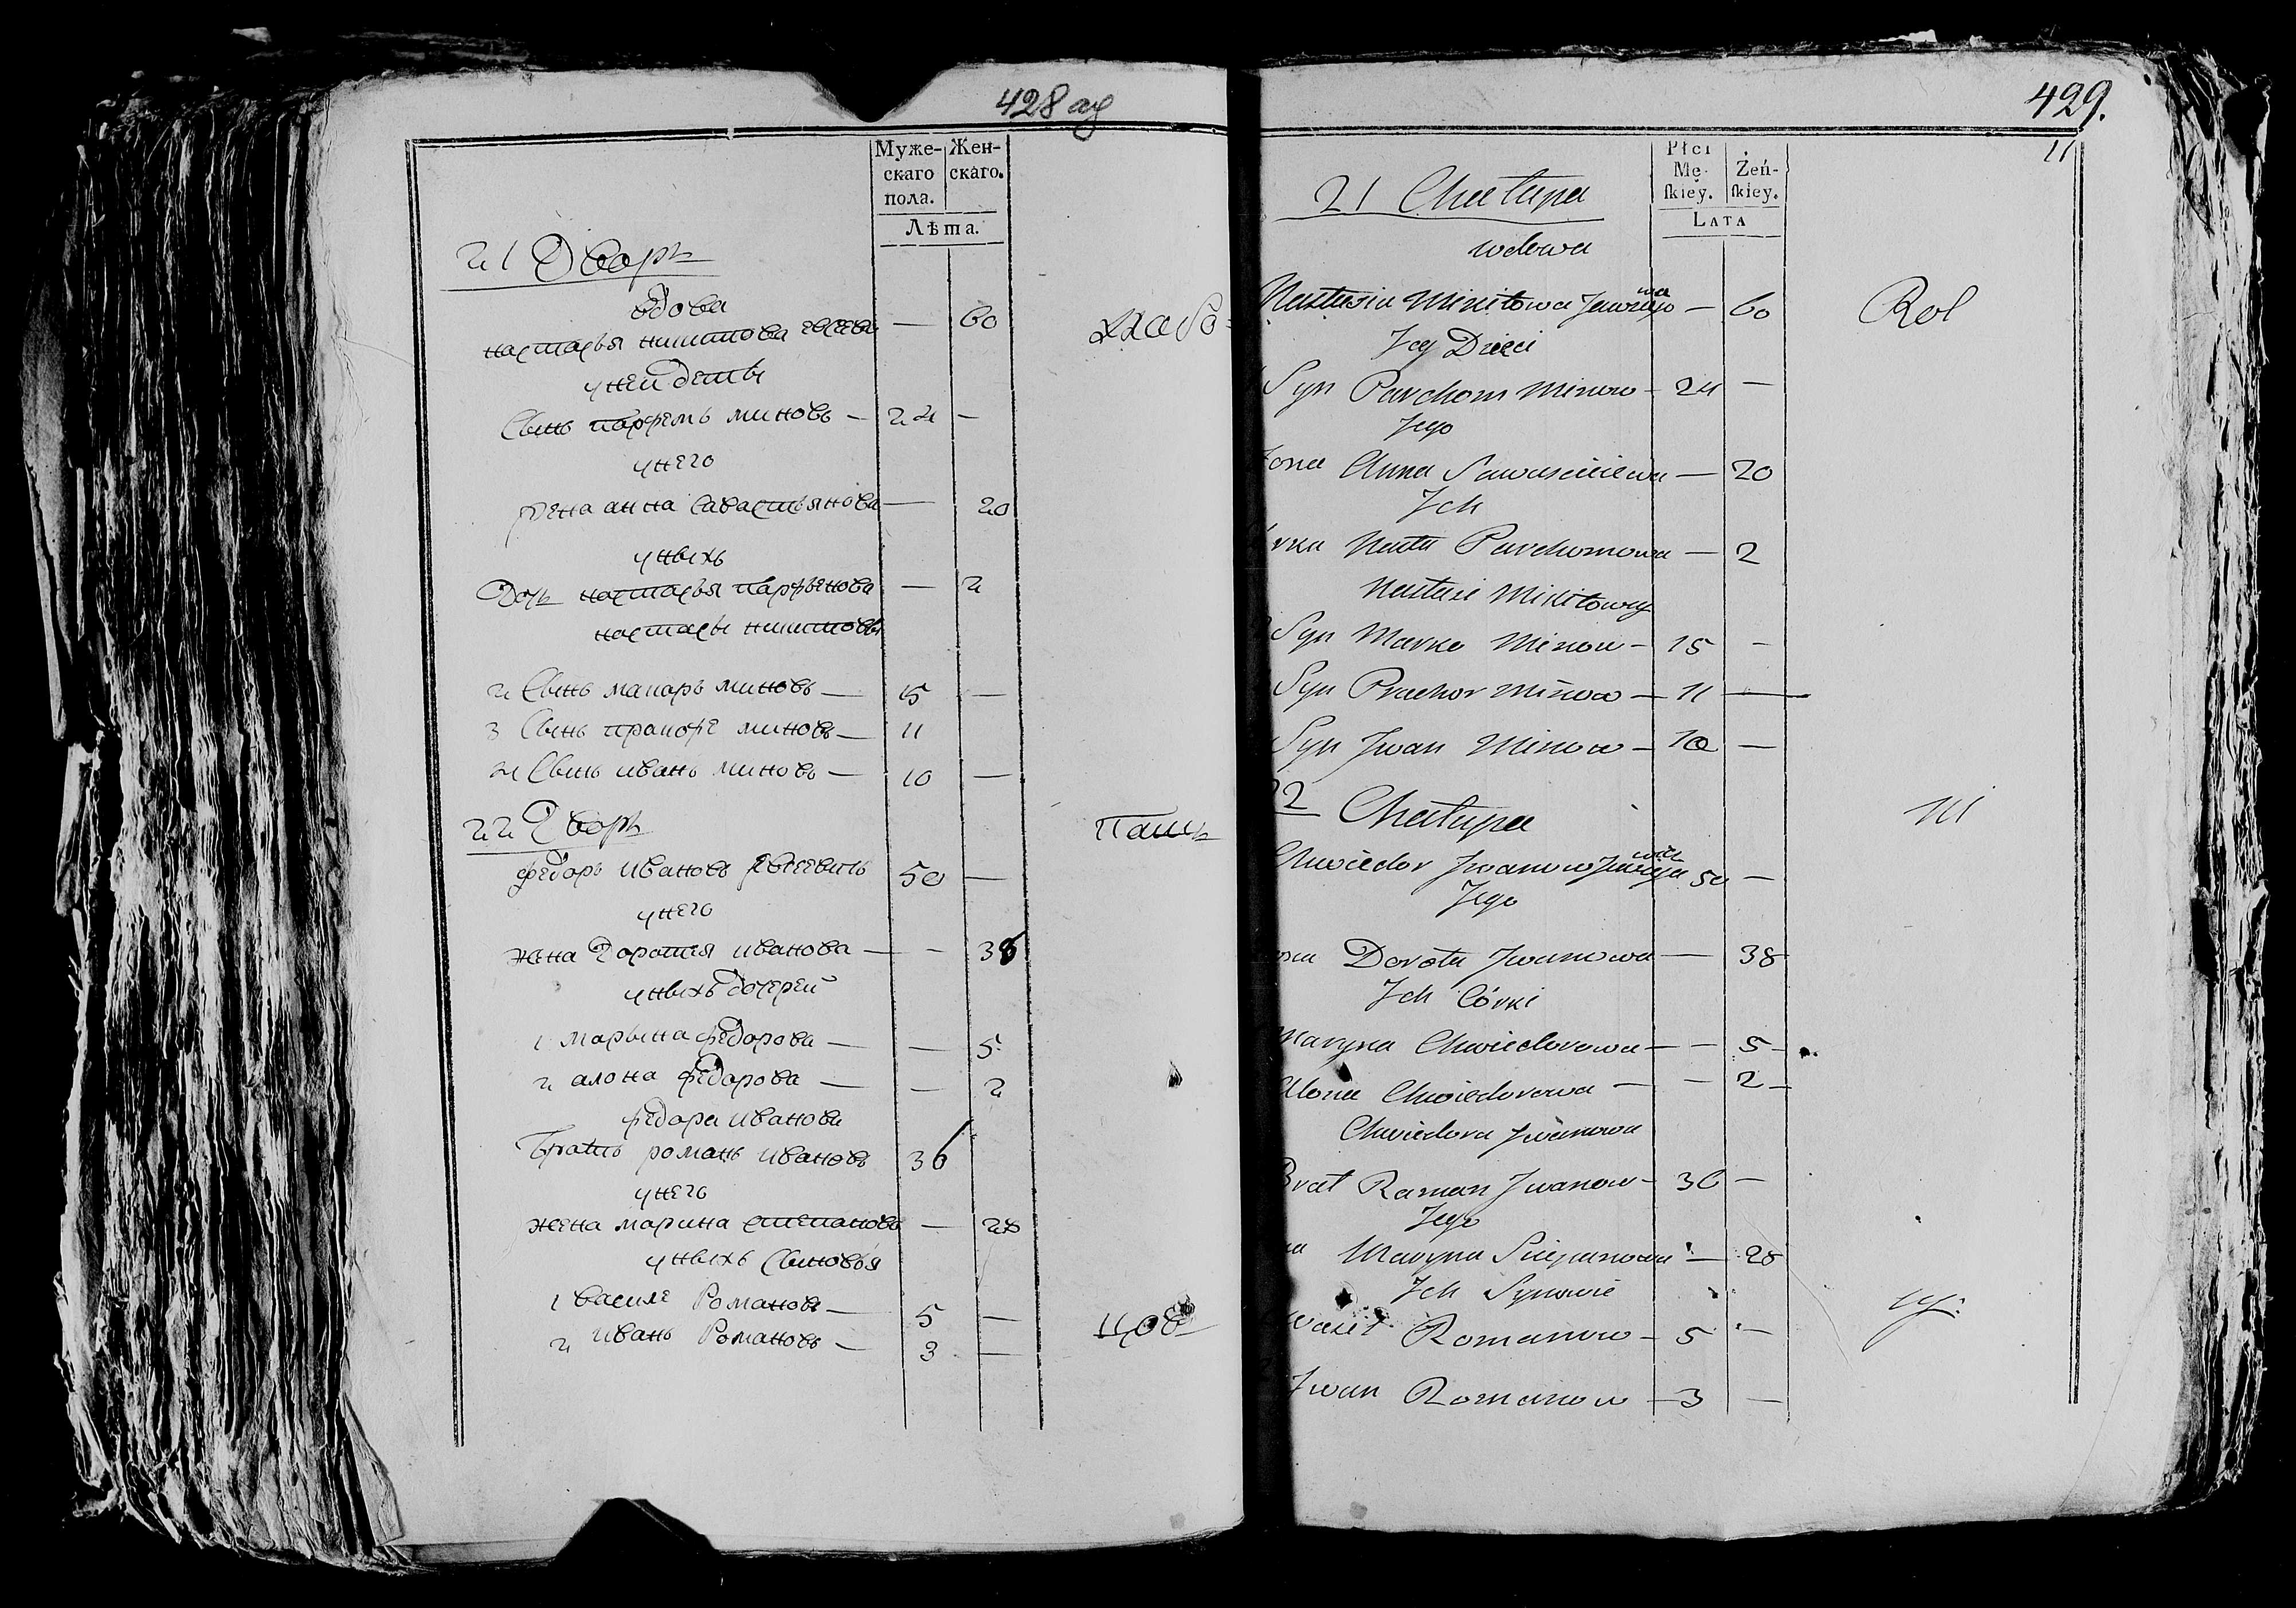 428 ад
Муже-
скаго
пола.
Жен-
скаго.
Лѣта.
21 Дворъ
вдова
настасья никитова — 60
у неи дети
Сынъ парфемъ миновъ — 24 —
у него
жена анна савастьянова — 20
у ныхъ
Дочь настасья парфьенова — 2
настасьи никитовы
2 Сынъ макаръ миновъ — 15 —
3 Сынъ пракофе миновъ — 11
4 Сынъ иванъ миновъ — 10 —
22 Дворъ
федоръ ивановъ 50 —
у него
жена Доротея иванова — — 38
у ныхъ дочереи
1 марына федорова — — 5
2 алона федорова — — 2
федора иванова
Братъ романъ ивановъ 36
у него
жена марина степанова — 28
у ныхъ сыновья
1 василе Романовъ — 5 —
2 иванъ Романовъ — 3 —
429.
11
Płci
Mę-
skiey.
Żeń-
skiey.
Lata
21 Chałupa
wdowa
Nastasia Mikitowa — 60
Jey Dzieci
Syn Parchom Minow — 24 —
Jego
Żona Anna — 20
Ich
Nasta Parchomowa — 2
Nastasi Mikitowey
Syn Marko Minow — 15 —
Syn Prachor Minow — 11 —
Syn Iwan Minow — 10 —
22 Chałupa
Chwiedor Iwanow 50 —
Jego
Dorota Iwanowa — 38
Ich Córki
Maryna Chwiedorowa — — 5 —
Alona Chwiedorowa — — 2 —
Chwiedora Iwanowa
Brat Raman Iwanow — 36 —
Jego
Maryna Sciepanowa — 28
Ich Synowie
Wasil Romanow — 5 —
Iwan Romanow — 3 —